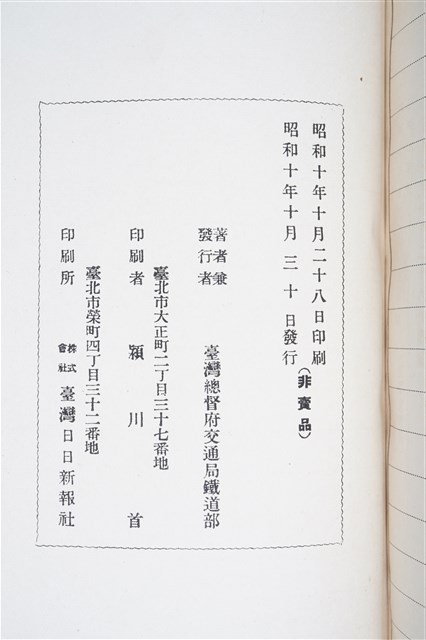 昭和十年十月二十八日印刷
昭和十年十月三十日發行
(非賣品)
著者兼
發行者
臺灣總督府交通局鐵道部
臺北市大正町二丁目三十七番地
印刷者 潁川首
臺北市榮町四丁目三十二番地
印刷所 株式會社 臺灣日日新報社